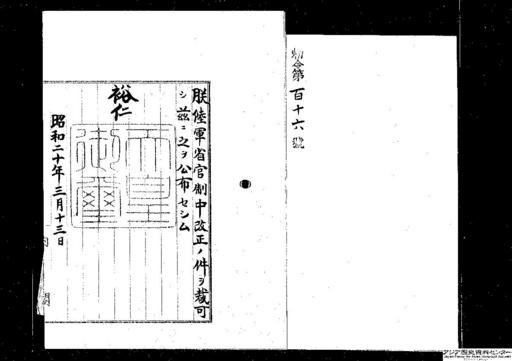 勅令第百十六號
朕陸軍省官制中改正ノ件ヲ裁可
シ茲ニ之ヲ公布セシム
裕仁
天皇
御璽
昭和二十年三月十三日
アジア歴史資料センター